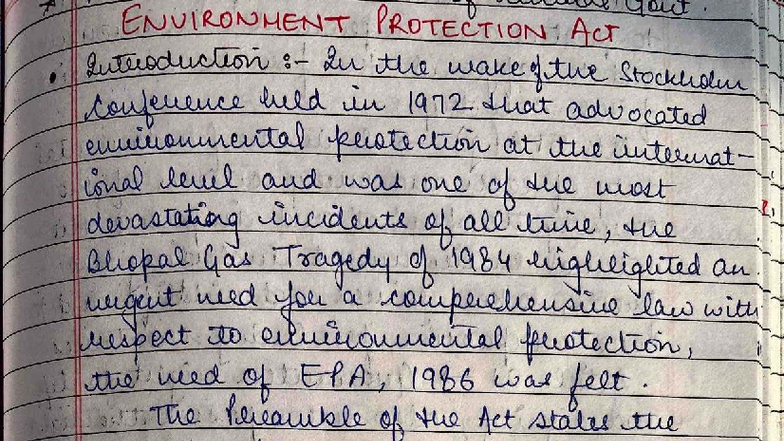 Govt.
ENVIRONMENT PROTECTION ACT
• Introduction :- In the wake of the Stockholm
Conference held in 1972 that advocated
environmental protection at the internat-
ional level and was one of the most
devastating incidents of all time, the
Bhopal Gas Tragedy of 1984 highlighted an
urgent need for a comprehensive law with
respect to environmental protection,
the need of EPA, 1986 was felt.
The Preamble of the Act states the